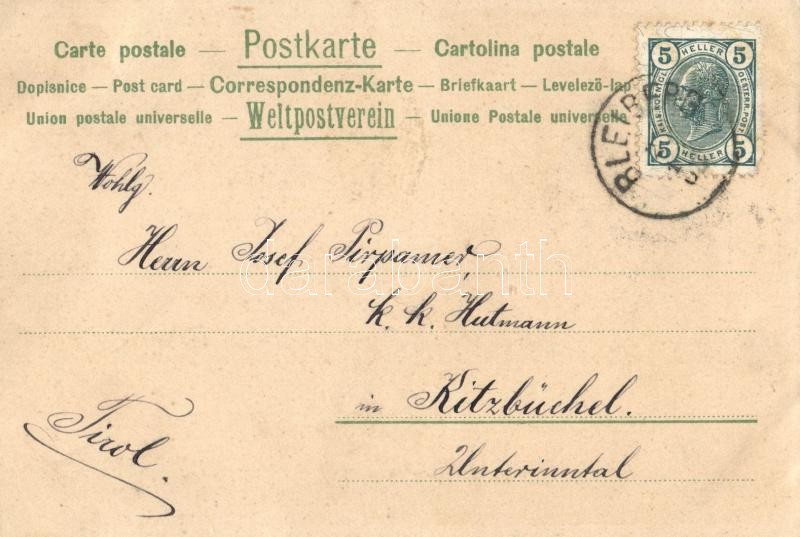 Carte postale — Postkarte — Cartolina postale
Dopisnice — Post card — Correspondenz-Karte — Briefkaart — Levelező-lap
Union postale universelle — Weltpostverein — Unione Postale universelle
5 HELLER 5
KAIS. KOENIGL. OESTERR. POST.
5 HELLER 5
BLEIBERG
Wohlg.
Herrn Josef Pirpamer,
k. k. Hutmann
in Kitzbüchel.
Tirol.
Unterinntal
darabanth